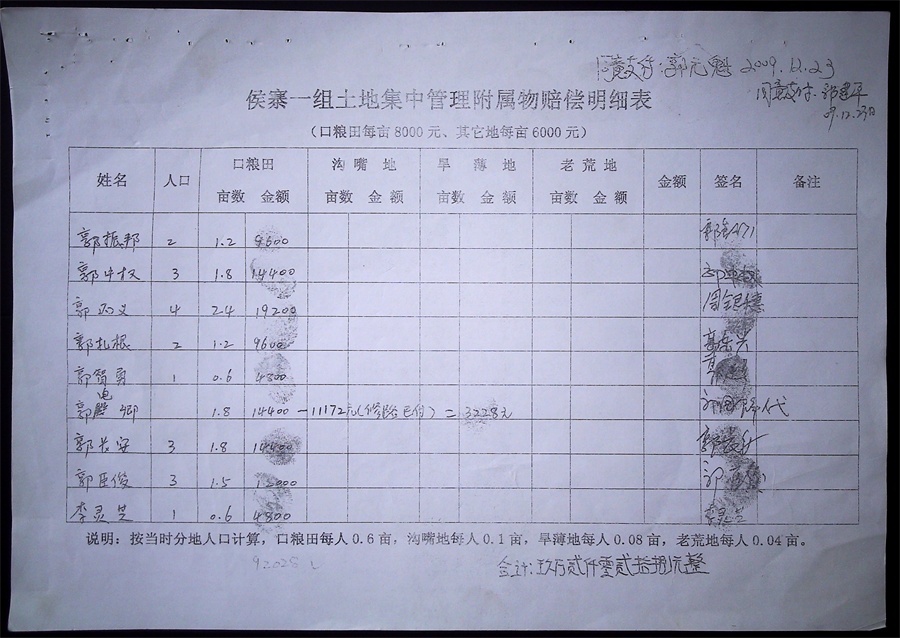 同意支付 郭元魁 2009.12.23
同意支付 郭建平
09.12.23日
侯寨一组土地集中管理附属物赔偿明细表
（口粮田每亩8000元、其它地每亩6000元）
姓名 人口 口粮田 沟嘴地 旱薄地 老荒地 金额 签名 备注
亩数 金额 亩数 金额 亩数 金额 亩数 金额
郭振邦 2 1.2 9600
郭中权 3 1.8 14400
郭 义 4 2.4 19200 周银穗
郭扎根 2 1.2 9600
郭智勇 1 0.6 4800
郭殿卿 1.8 14400－11172元(修路已付)＝3228元 代
郭长安 3 1.8 14400
郭臣俊 3 1.5 12000
李灵芝 1 0.6 4800 李灵芝
说明：按当时分地人口计算，口粮田每人0.6亩，沟嘴地每人0.1亩，旱薄地每人0.08亩，老荒地每人0.04亩。
92028
合计：玖万贰仟零贰拾捌元整